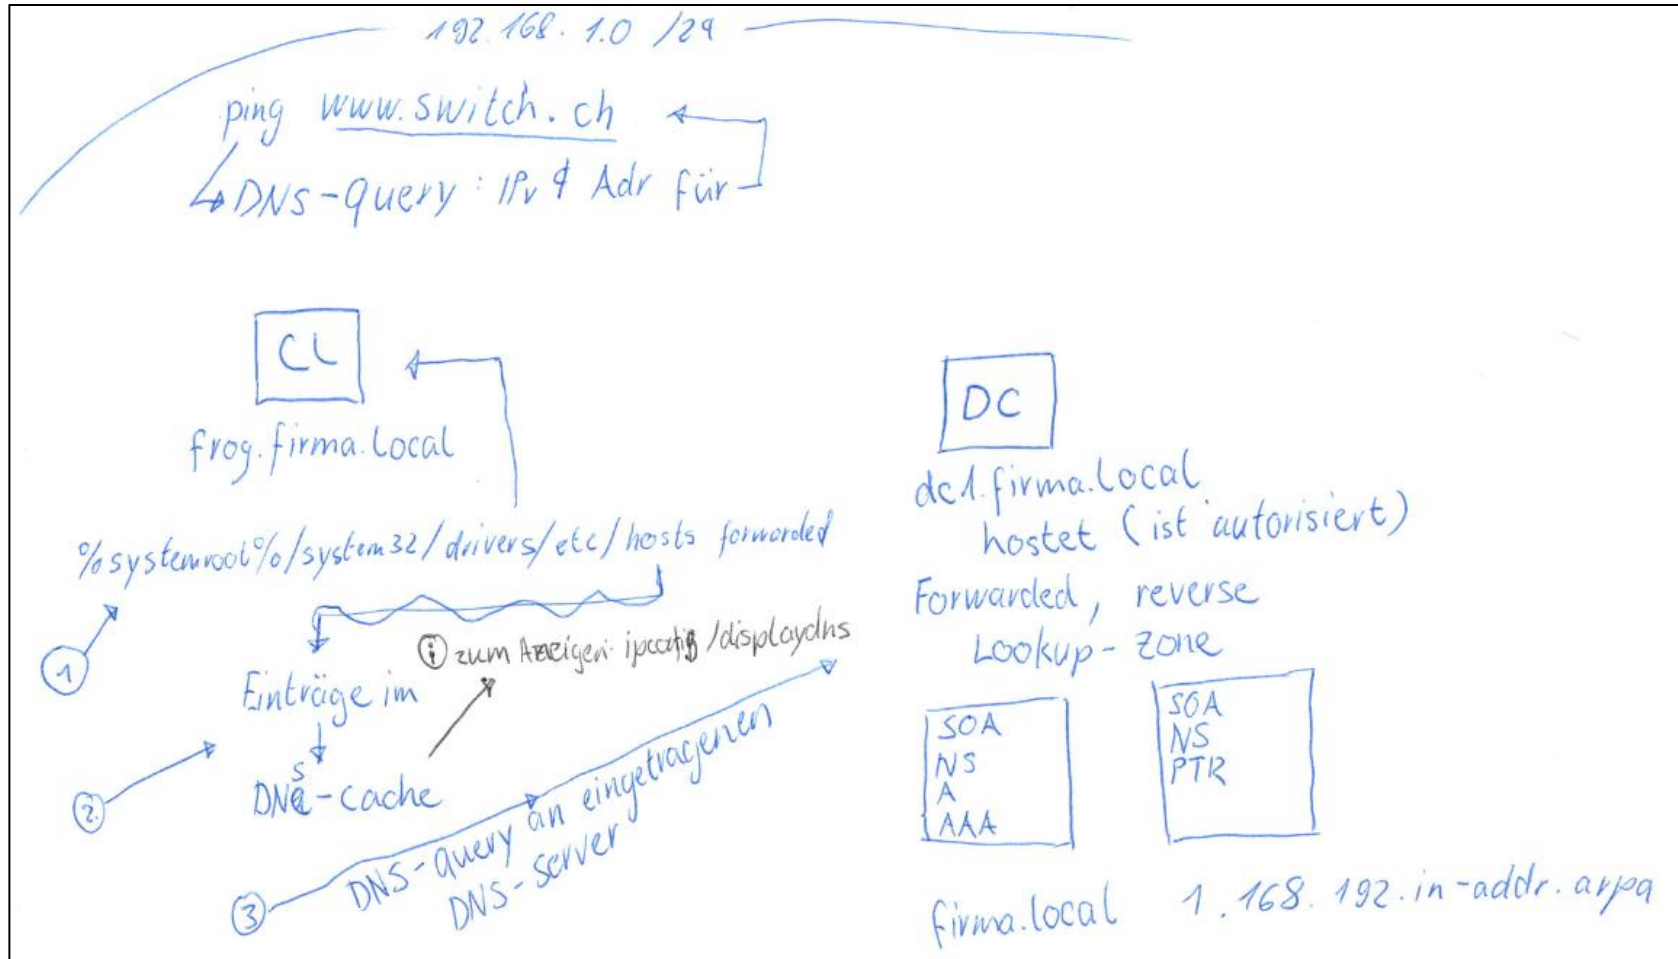 192.168.1.0 /24
ping www.switch.ch
DNS-query: IPv4 Adr für
CL
frog.firma.local
%systemroot%/system32/drivers/etc/hosts forwarded
1
zum Anzeigen: ipconfig /displaydns
Einträge im
2.
DNS-cache
3
DNS-query an eingetragenen
DNS-server
DC
dc1.firma.local
hostet (ist autorisiert)
Forwarded, reverse
Lookup-zone
SOA
NS
A
AAA
SOA
NS
PTR
firma.local 1.168.192.in-addr.arpa